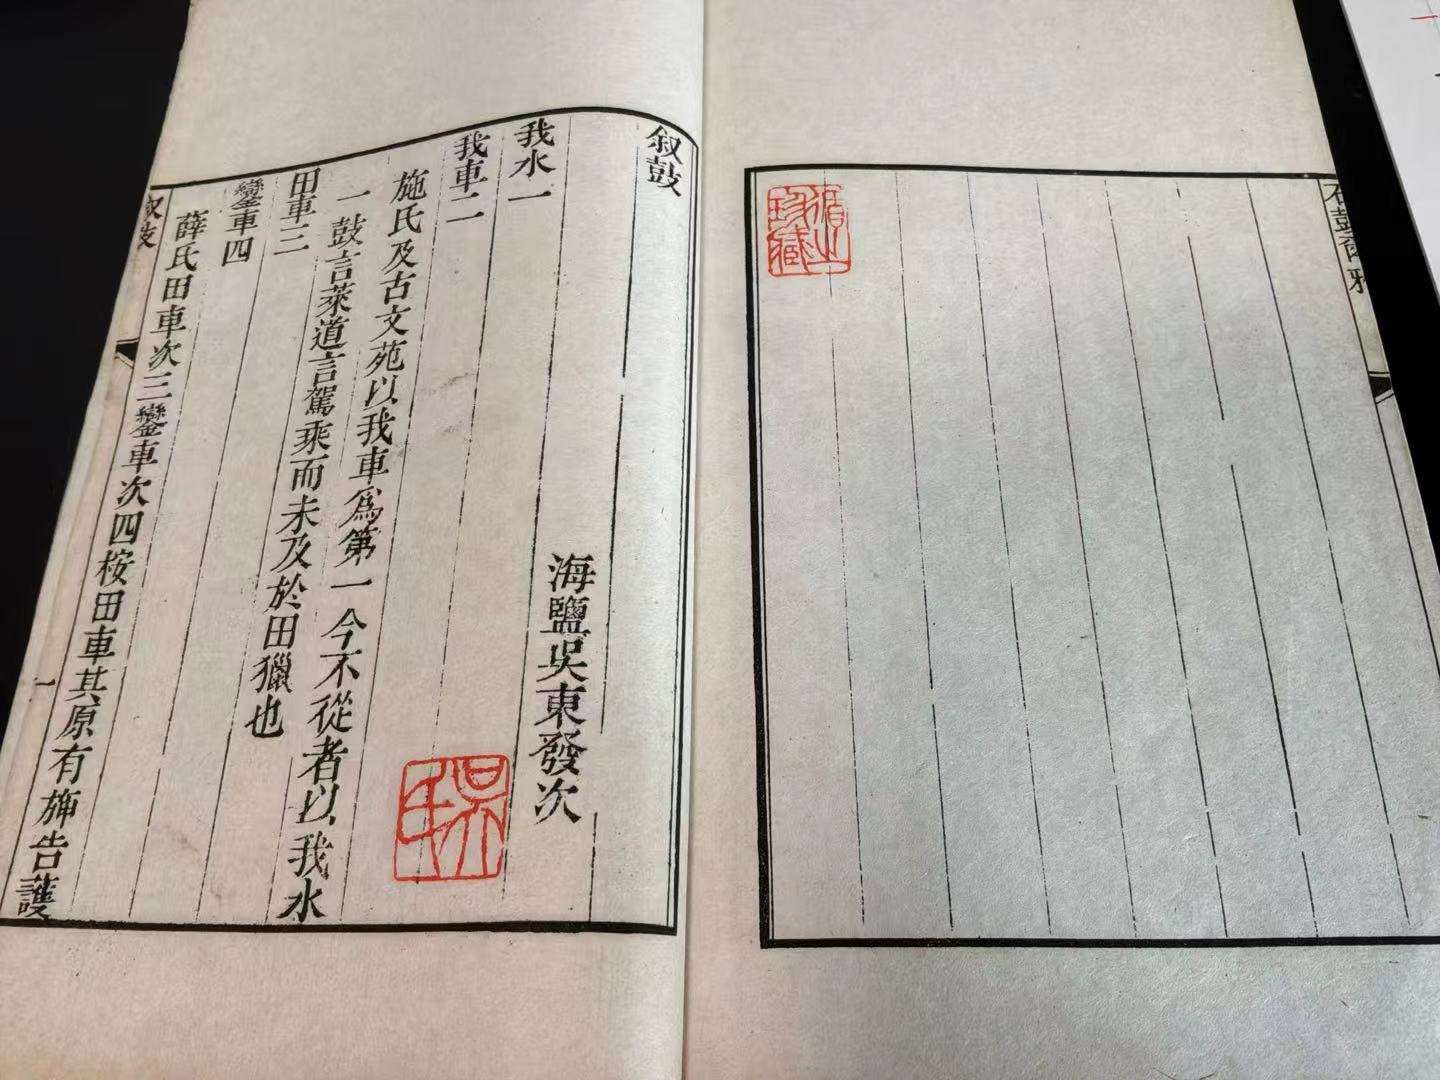 石鼓爾雅
循之珍藏
叙鼓
海鹽吳東發次
我水一
我車二
施氏及古文苑以我車爲第一今不從者以我水
一鼓言萊道言駕乘而未及於田獵也
田車三
鑾車四
薛氏田車次三鑾車次四桉田車其原有旆告護
叙鼓
一
吳氏